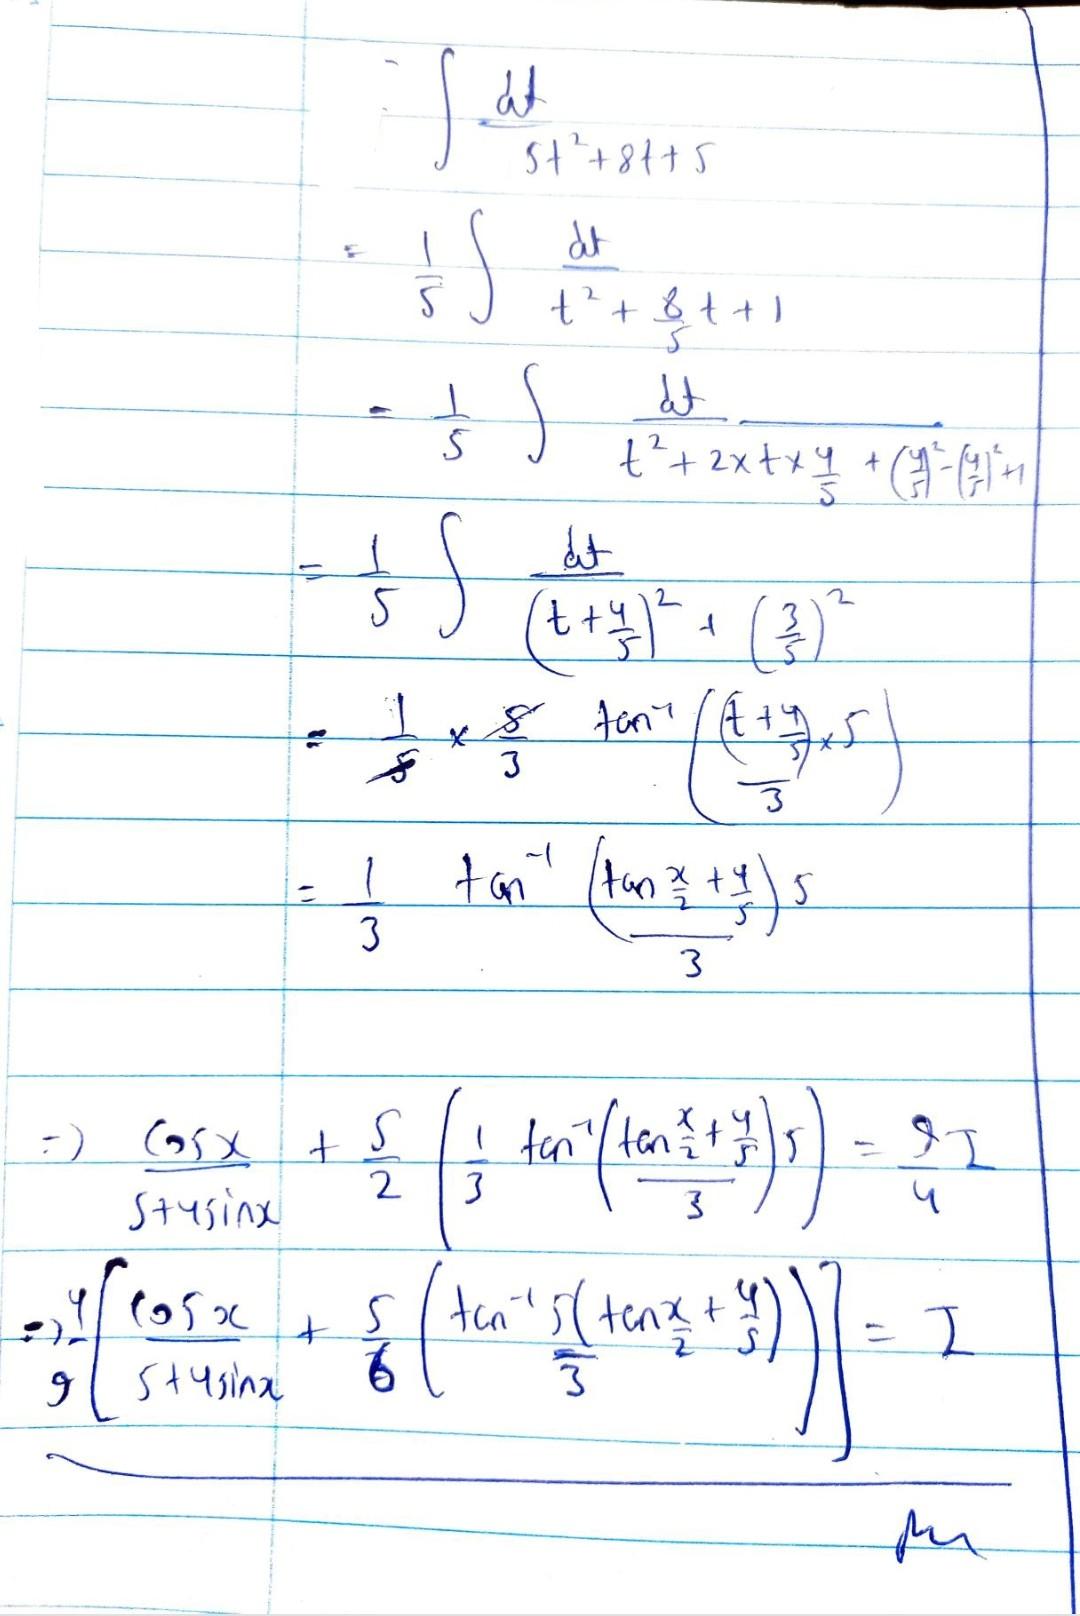 = ∫ dt / (5t² + 8t + 5)
= 1/5 ∫ dt / (t² + 8/5 t + 1)
= 1/5 ∫ dt / (t² + 2 x t x 4/5 + (4/5)² - (4/5)² + 1)
= 1/5 ∫ dt / ((t + 4/5)² + (3/5)²)
= 1/5 x 5/3 tan⁻¹ ((t + 4/5) x 5 / 3)
= 1/3 tan⁻¹ (tan x/2 + 4/5) 5 / 3
=> cosx / (5+4sinx) + 5/2 (1/3 tan⁻¹ (tan x/2 + 4/5) 5 / 3) = 9I / 4
=> 4/9 [cosx / (5+4sinx) + 5/6 (tan⁻¹ 5/3 (tan x/2 + 4/5))] = I